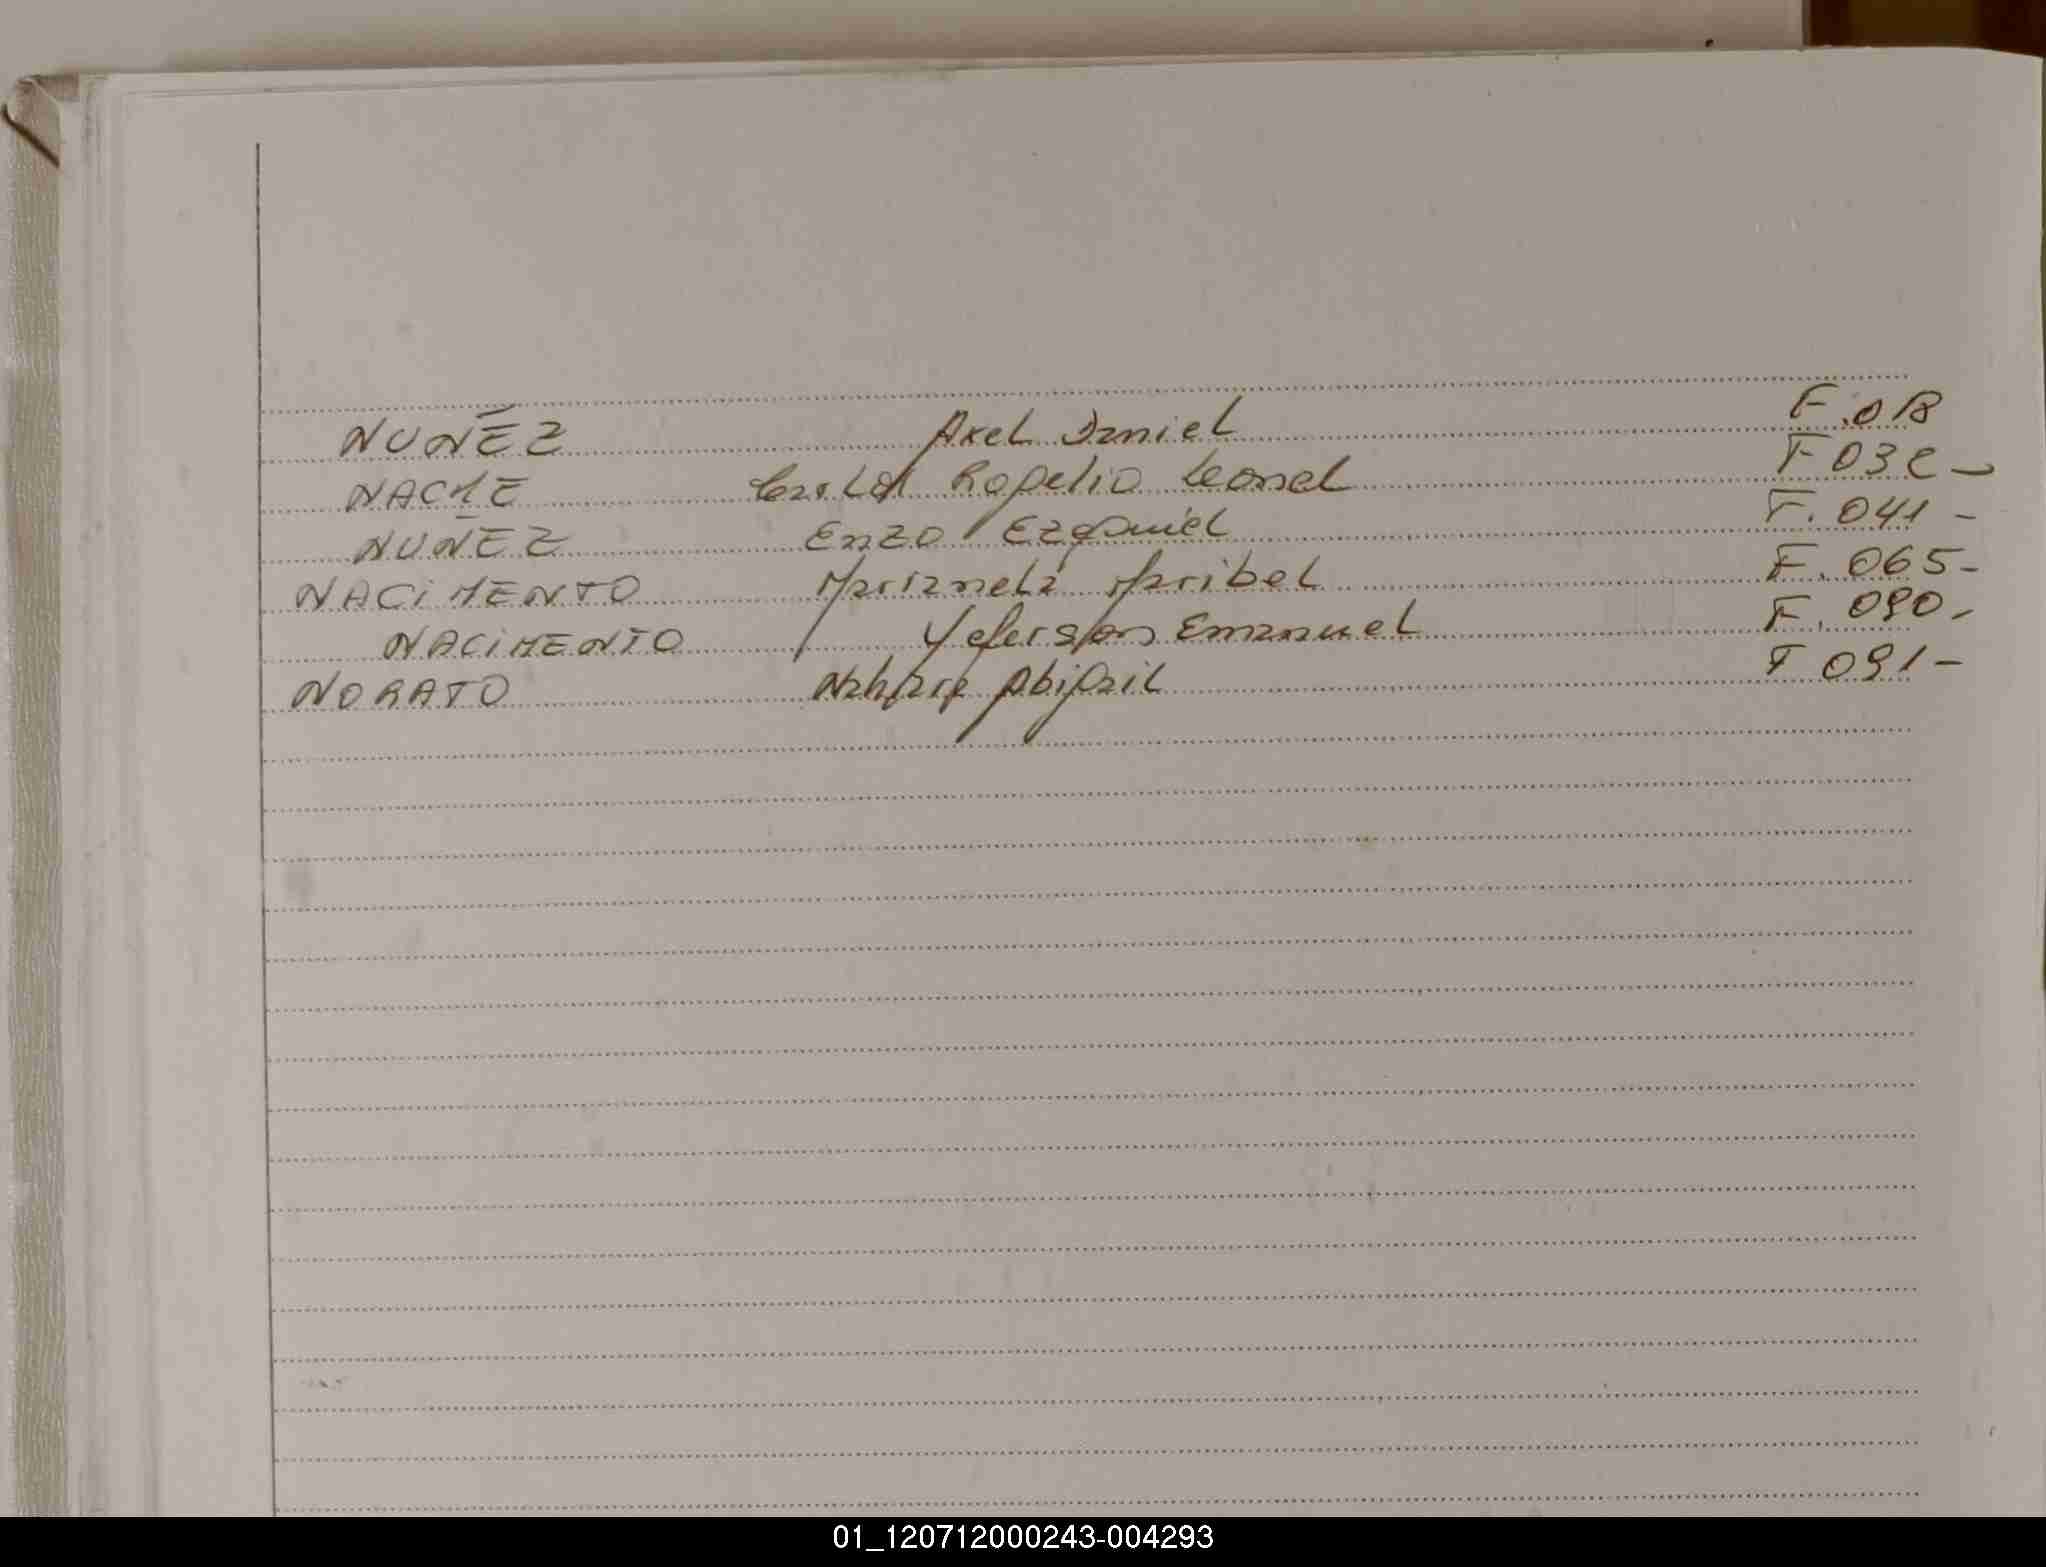 NUÑEZ Axel Daniel F. 018
NACKE Carlos Rogelio Leonel F 032 -
NUÑEZ Enzo Ezequiel F. 041 -
NACIMENTO Marianela Maribel F. 065 -
NACIMENTO Yeferson Emanuel F. 090 -
NORATO Nahiara Abigail F 091 -
01_120712000243-004293